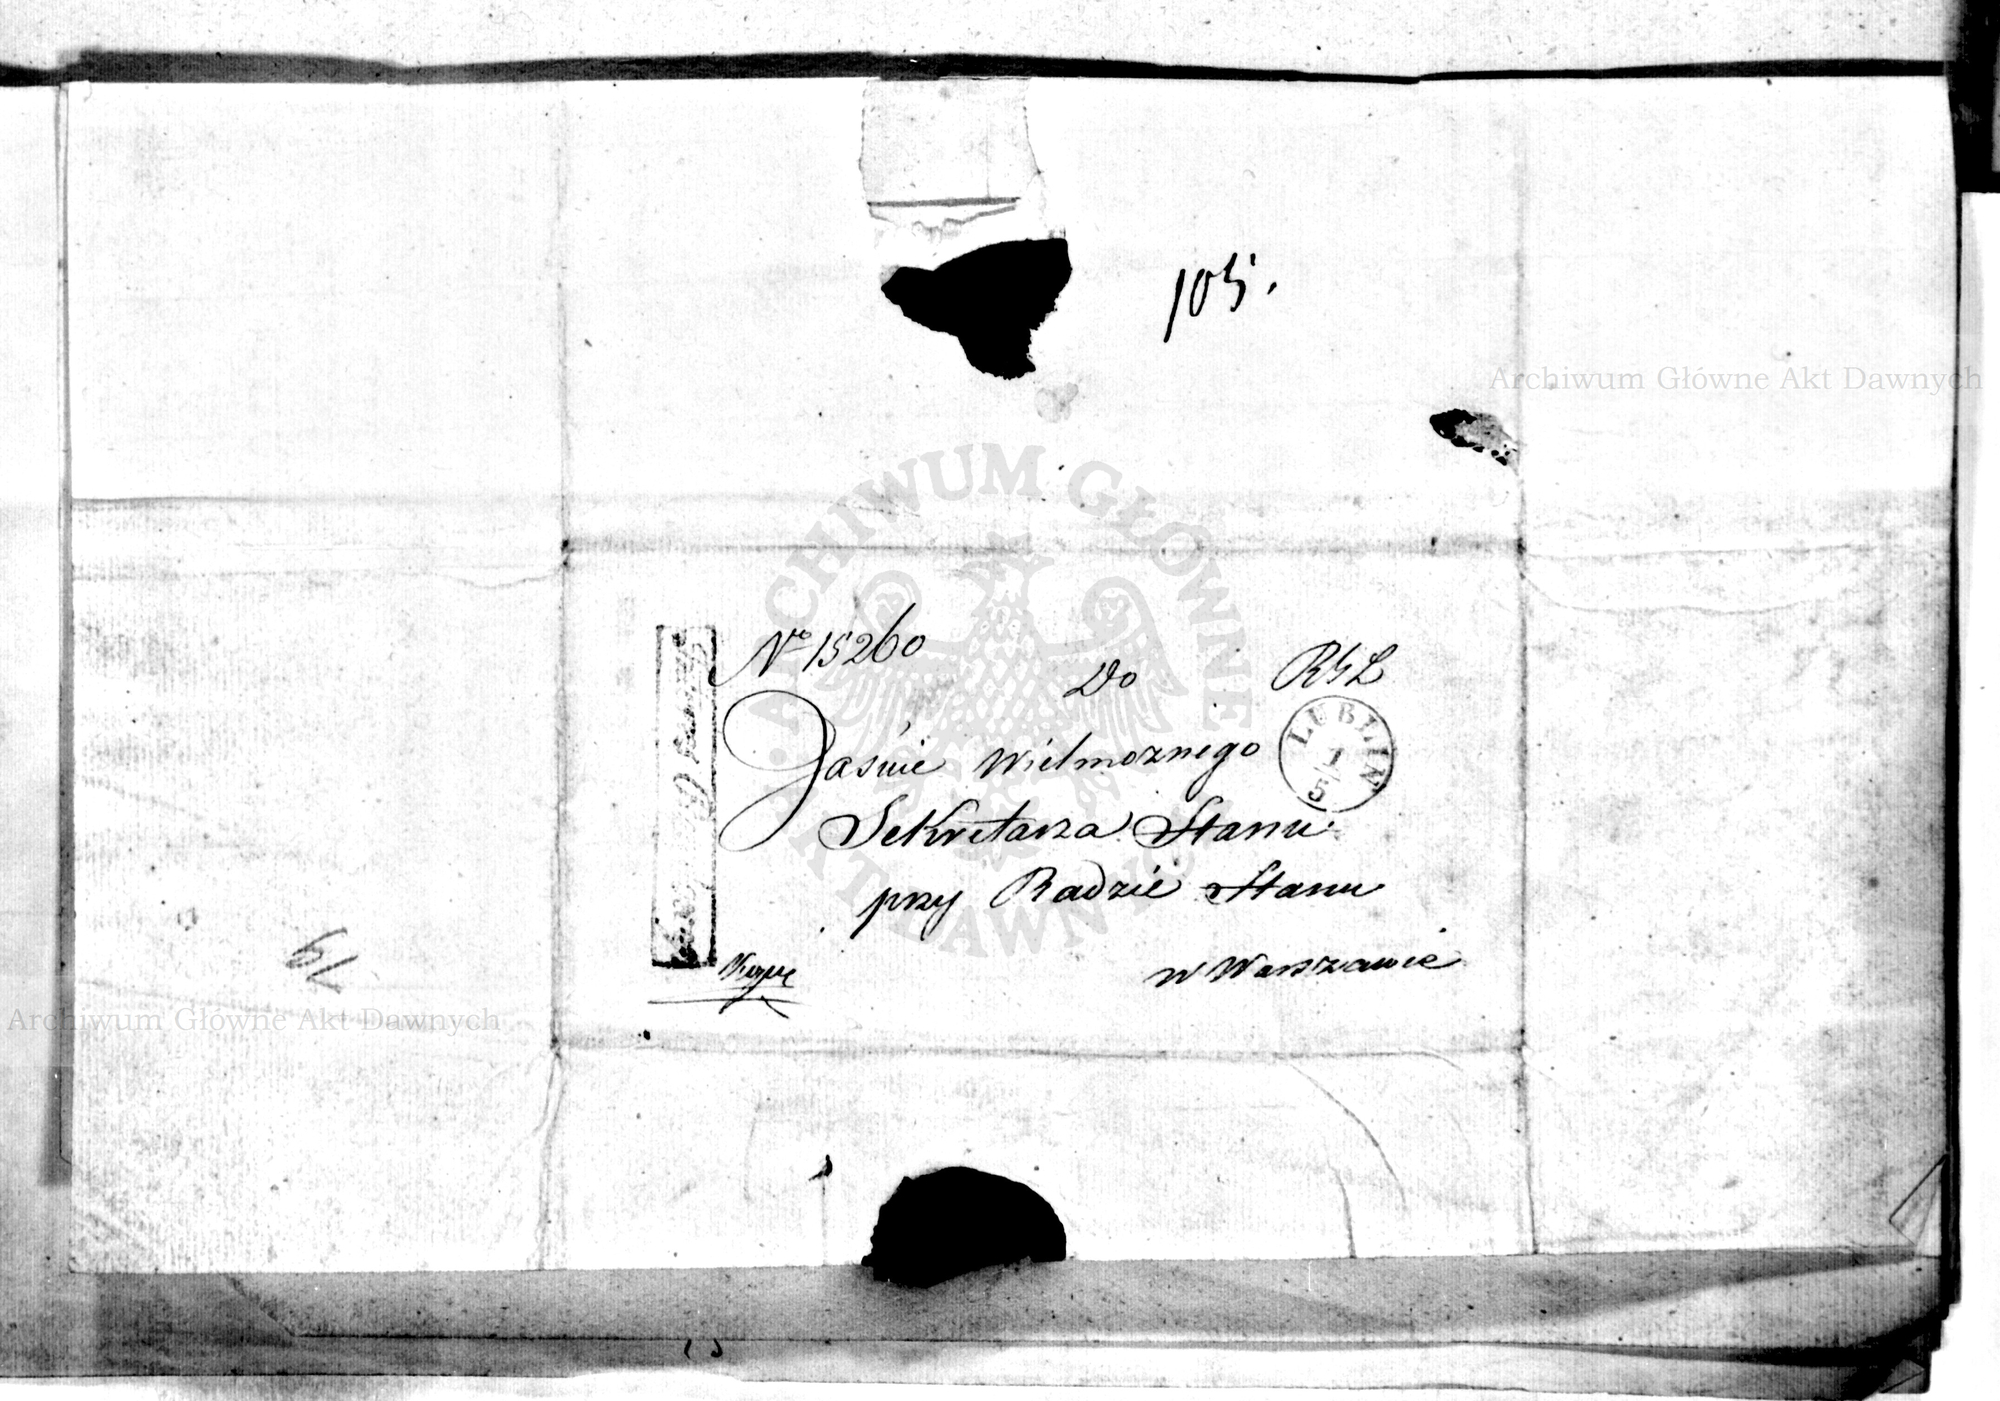 105.
Archiwum Główne Akt Dawnych
ARCHIWUM GŁÓWNE AKT DAWNYCH
No 15260
Do
RGL
LUBLIN
1
5
Jaśnie Wielmożnego
Sekretarza Stanu
przy Radzie Stanu
w Warszawie
79
Archiwum Główne Akt Dawnych